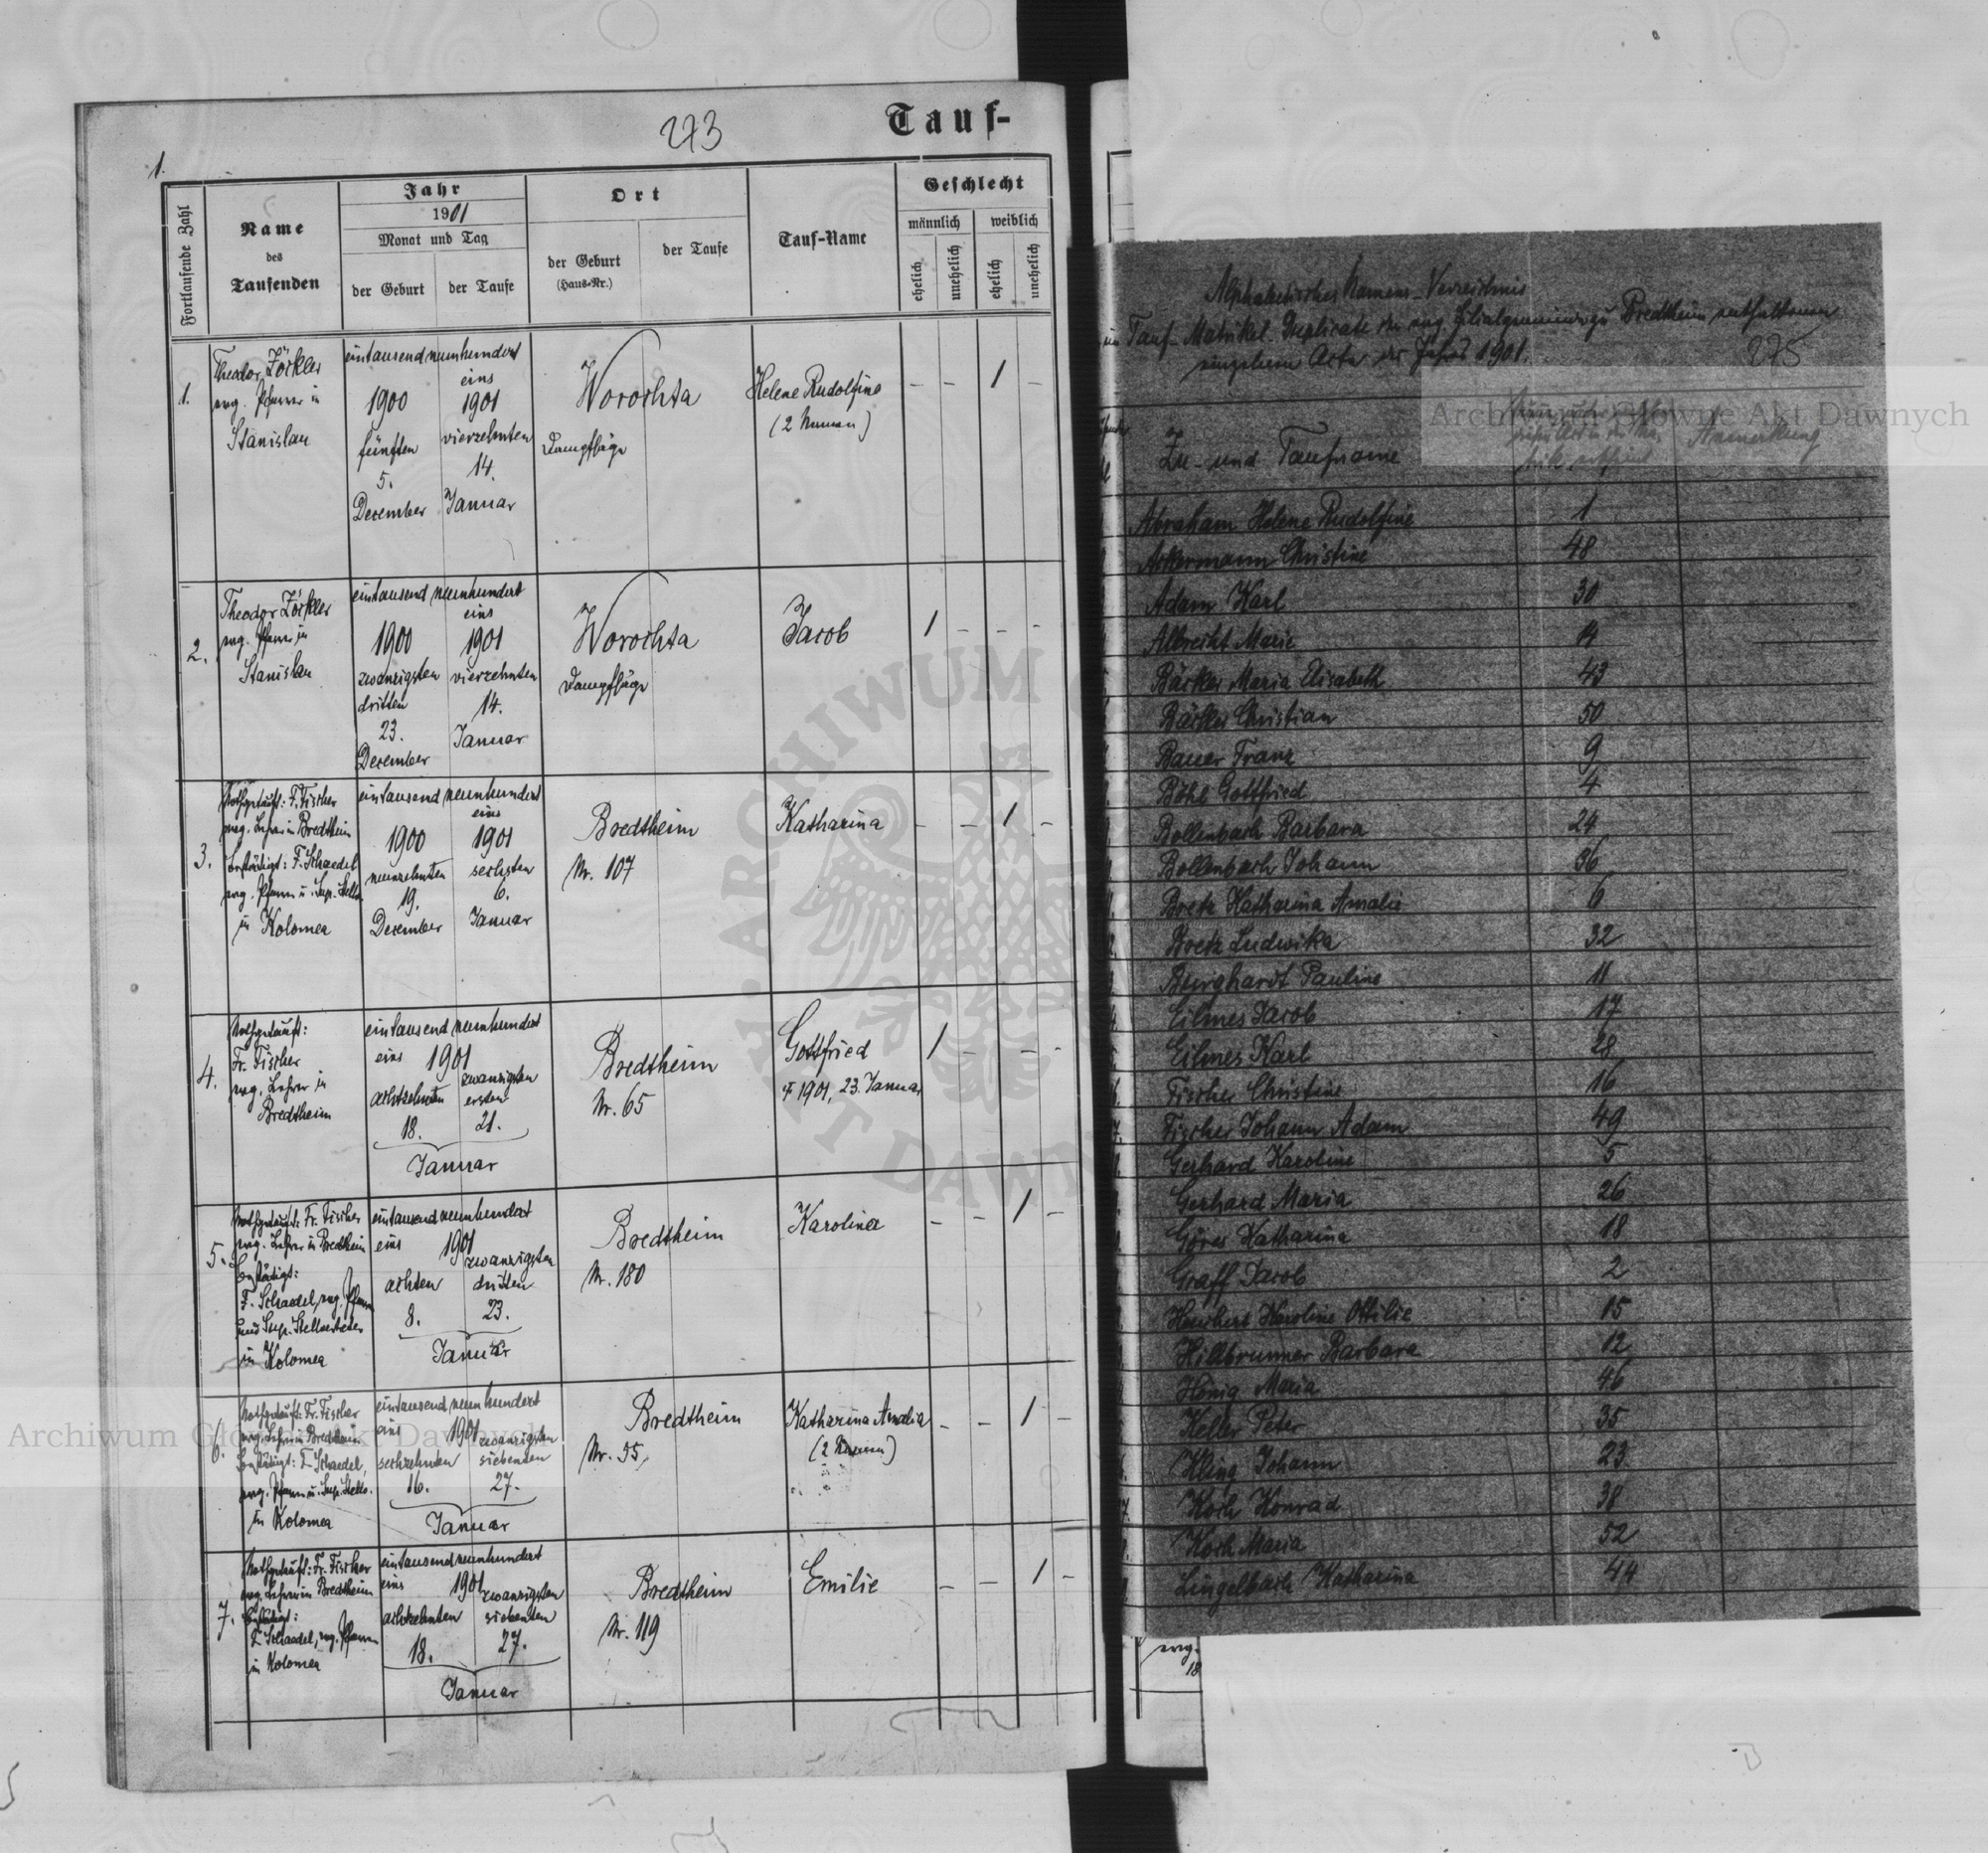 273
Tauf-
1.
Fortlaufende Zahl
Name
des
Taufenden
Jahr
1901
Monat und Tag
der Geburt
der Taufe
Ort
der Geburt
(Haus-Nr.)
der Taufe
Tauf-Name
Geschlecht
männlich
weiblich
ehelich
unehelich
ehelich
unehelich
1.
Theodor Zöckler
evg. Pfarrer in
Stanislau
eintausend neunhundert
eins
1900 1901
fünften vierzehnten
5. 14.
December Januar
Worochta
Dampfsäge
Helene Rudolfine
(2 Namen)
– – 1 –
2.
Theodor Zöckler
evg. Pfarrer in
Stanislau
eintausend neunhundert
eins
1900 1901
zwanzigsten vierzehnten
dritten 14.
23. Januar
December
Worochta
Dampfsäge
Jacob
1 – – –
3.
Nothgetauft: F. Fischer
evg. Lehrer in Bredtheim
bestätigt: F. Schaedel
evg. Pfarrer u. Sup. Stellv.
in Kolomea
eintausend neunhundert
eins
1900 1901
neunzehnten sechsten
19. 6.
December Januar
Bredtheim
Nr. 107
Katharina
– – 1 –
4.
Nothgetauft:
Fr. Fischer
evg. Lehrer in
Bredtheim
eintausend neunhundert
eins 1901
achtzehnten zwanzigsten
ersten
18. 21.
Januar
Bredtheim
Nr. 65
Gottfried
† 1901, 23. Januar
1 – – –
5.
Nothgetauft: Fr. Fischer
evg. Lehrer in Bredtheim
bestätigt:
F. Schaedel, evg. Pfarrer
und Sup. Stellvertreter
in Kolomea
eintausend neunhundert
eins 1901
achten zwanzigsten
dritten
8. 23.
Januar
Bredtheim
Nr. 180
Karolina
– – 1 –
6.
Nothgetauft: Fr. Fischer
evg. Lehrer in Bredtheim
bestätigt: F. Schaedel,
evg. Pfarrer u. Sup. Stellv.
in Kolomea
eintausend neunhundert
eins 1901
sechzehnten zwanzigsten
siebenten
16. 27.
Januar
Bredtheim
Nr. 55
Katharina Amalia
(2 Namen)
– – 1 –
7.
Nothgetauft: Fr. Fischer
evg. Lehrer in Bredtheim
bestätigt:
F. Schaedel, evg. Pfarrer
in Kolomea
eintausend neunhundert
eins 1901
achtzehnten zwanzigsten
siebenten
18. 27.
Januar
Bredtheim
Nr. 119
Emilie
– – 1 –
Alphabetisches Namens-Verzeichnis
Tauf-Matrikel-Duplicate der evg. Filialgemeinde zu Bredtheim enthaltenen
Acte des Jahres 1901.
275
Zu- und Taufname
Anmerkung
Abraham Helene Rudolfine 1
Ackermann Christine 48
Adam Karl 30
Albrecht Marie 14
Bäcker Maria Elisabeth 43
Bäcker Christian 50
Bauer Franz 9
Böhl Gottfried 4
Bollenbach Barbara 24
Bollenbach Johann 36
Bretz Katharina Amalie 6
Bretz Ludwika 32
Burghardt Pauline 11
Eilmes Jacob 17
Eilmes Karl 28
Fischer Christine 16
Fischer Johann Adam 49
Gerhard Karoline 5
Gerhard Maria 26
Göres Katharina 18
Graff Jacob 2
Karoline Ottilie 15
Hillbrunner Barbara 12
König Maria 46
Keller Peter 35
Kling Johann 23
Koch Konrad 38
Koch Maria 52
Lingelbach Katharina 44
evg.
18
Archiwum Główne Akt Dawnych
Archiwum Główne Akt Dawnych